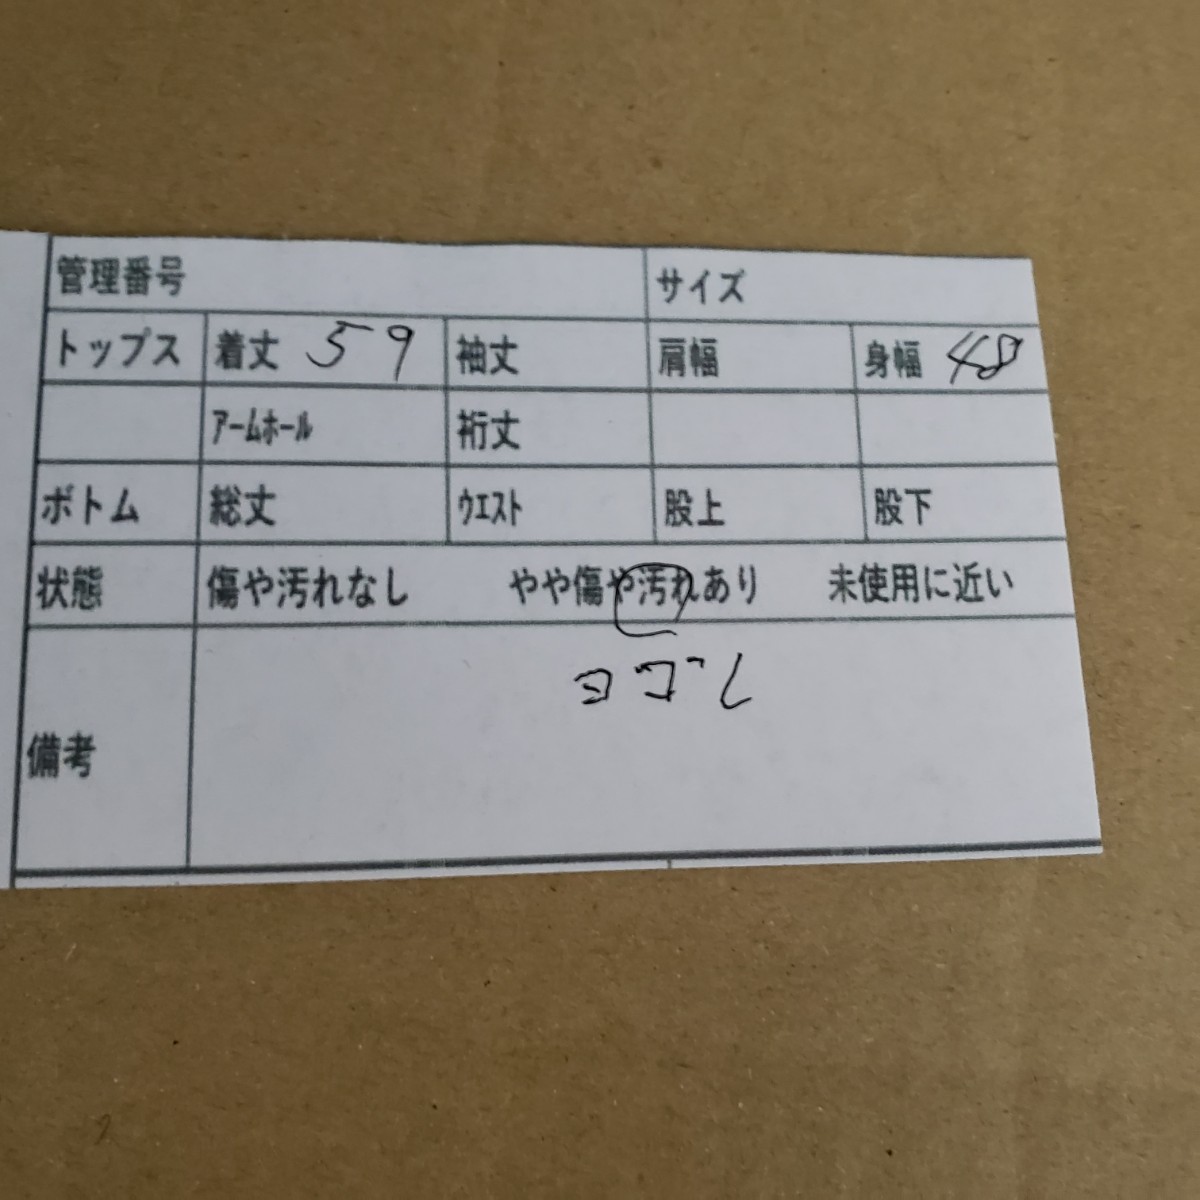 管理番号 サイズ
トップス 着丈 59 袖丈 肩幅 身幅 48
アームホール 裄丈
ボトム 総丈 ウエスト 股上 股下
状態 傷や汚れなし やや傷や汚れあり 未使用に近い
備考